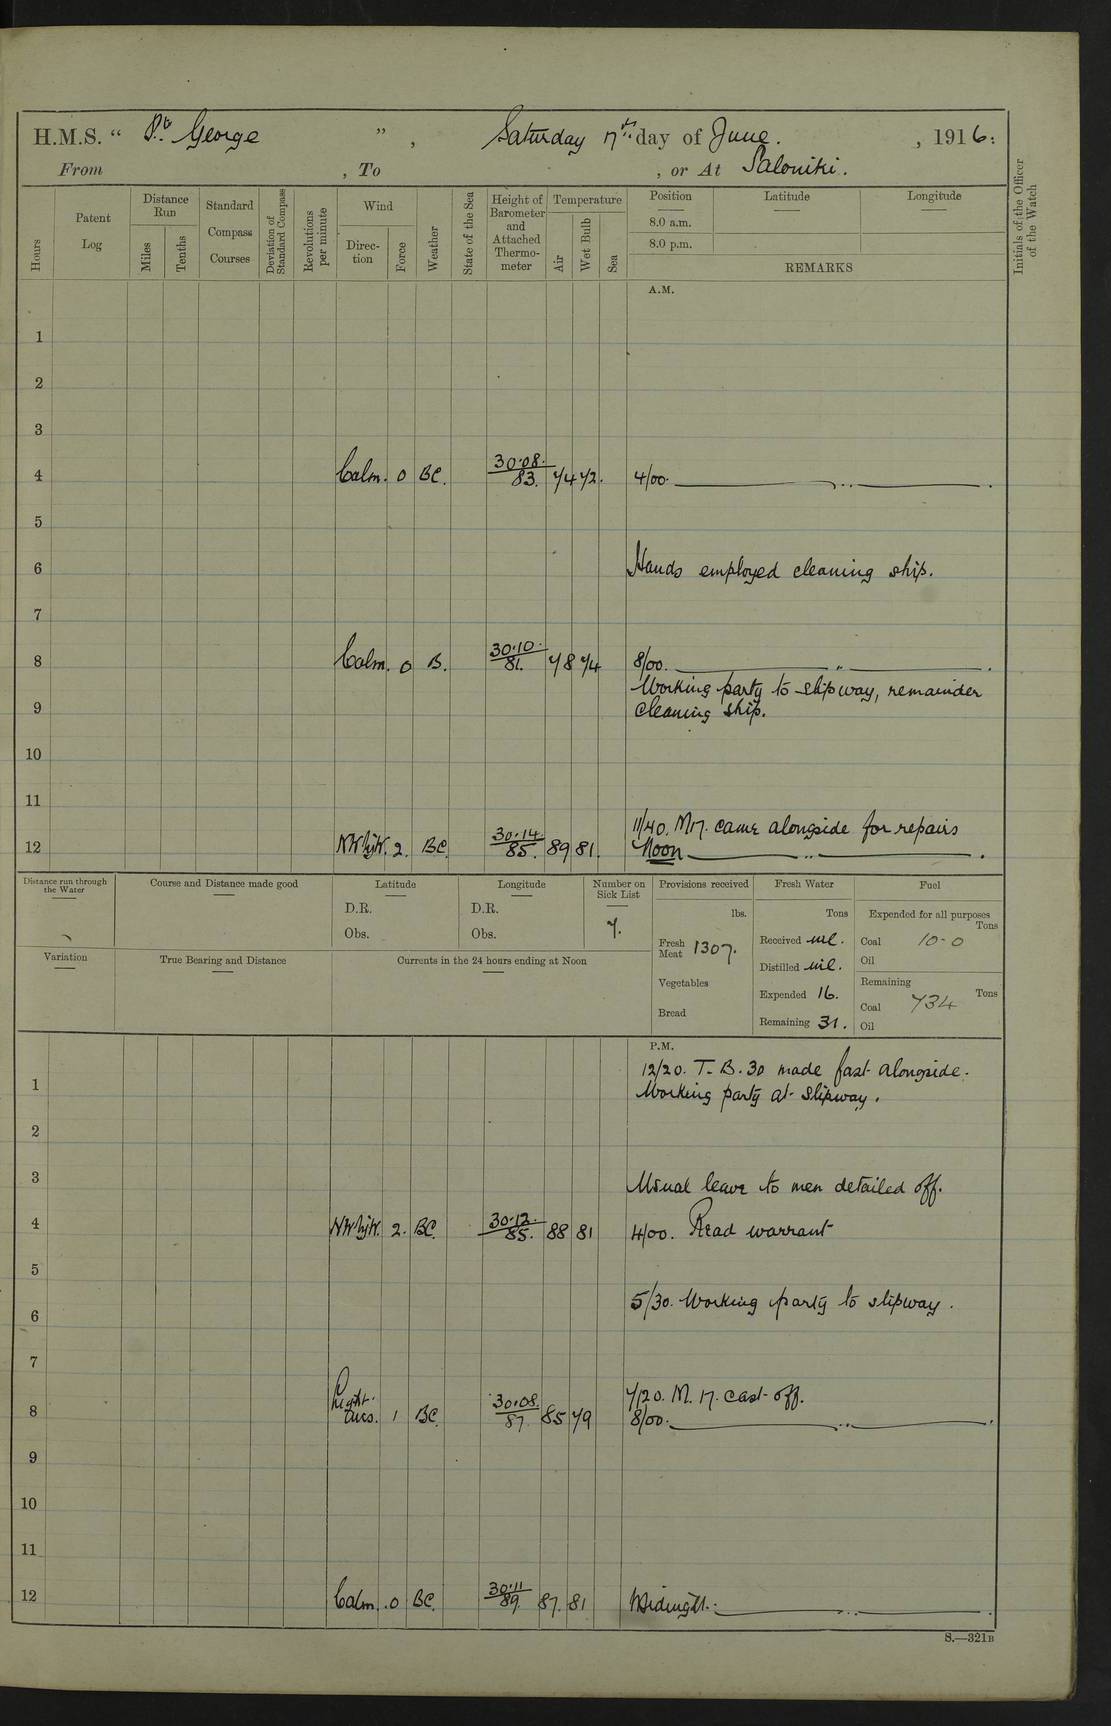 H.M.S. “ St. George ” , Saturday 17th day of June. , 1916:
From , To , or At Saloniki.
Hours
Patent Log
Distance Run
Miles
Tenths
Standard Compass Courses
Deviation of Standard Compass
Revolutions per minute
Wind
Direc-tion
Force
Weather
State of the Sea
Height of Barometer and Attached Thermo-meter
Temperature
Air
Wet Bulb
Sea
Position
8.0 a.m.
8.0 p.m.
Latitude
Longitude
REMARKS
Initials of the Officer of the Watch
A.M.
1
2
3
4 Calm. 0 BC. 30.08. 83. 74 72. 4/00. ———— " ———— .
5
6 Hands employed cleaning ship.
7
8 Calm. 0 B. 30.10. 81. 78 74 8/00. ———— " ———— .
Working party to slipway, remainder
9 cleaning ship.
10
11
11/40. M17. came alongside for repairs
12 NW by W. 2. BC. 30.14. 85. 89 81. Noon ———— " ———— .
Distance run through the Water
Course and Distance made good
Latitude
D.R.
Obs.
Longitude
D.R.
Obs.
Number on Sick List
7.
Provisions received
lbs.
Fresh Meat 1307.
Vegetables
Bread
Fresh Water
Tons
Received nil.
Distilled nil.
Expended 16.
Remaining 31.
Fuel
Expended for all purposes
Tons
Coal 10-0
Oil
Remaining
Tons
Coal 734
Oil
Variation
True Bearing and Distance
Currents in the 24 hours ending at Noon
P.M.
12/20. T.B. 30 made fast alongside.
1 Working party at slipway.
2
3 Usual leave to men detailed off.
4 NW by W. 2. BC. 30.12. 85. 88 81 4/00. Read warrant
5
5/30. Working party to slipway.
6
7
7/20. M. 17. cast off.
8 Light airs. 1 BC. 30.08. 87. 85 79 8/00. ———— " ———— .
9
10
11
12 Calm. 0 BC. 30.11 89. 87. 81 Midnight. ———— " ———— .
S.—321B